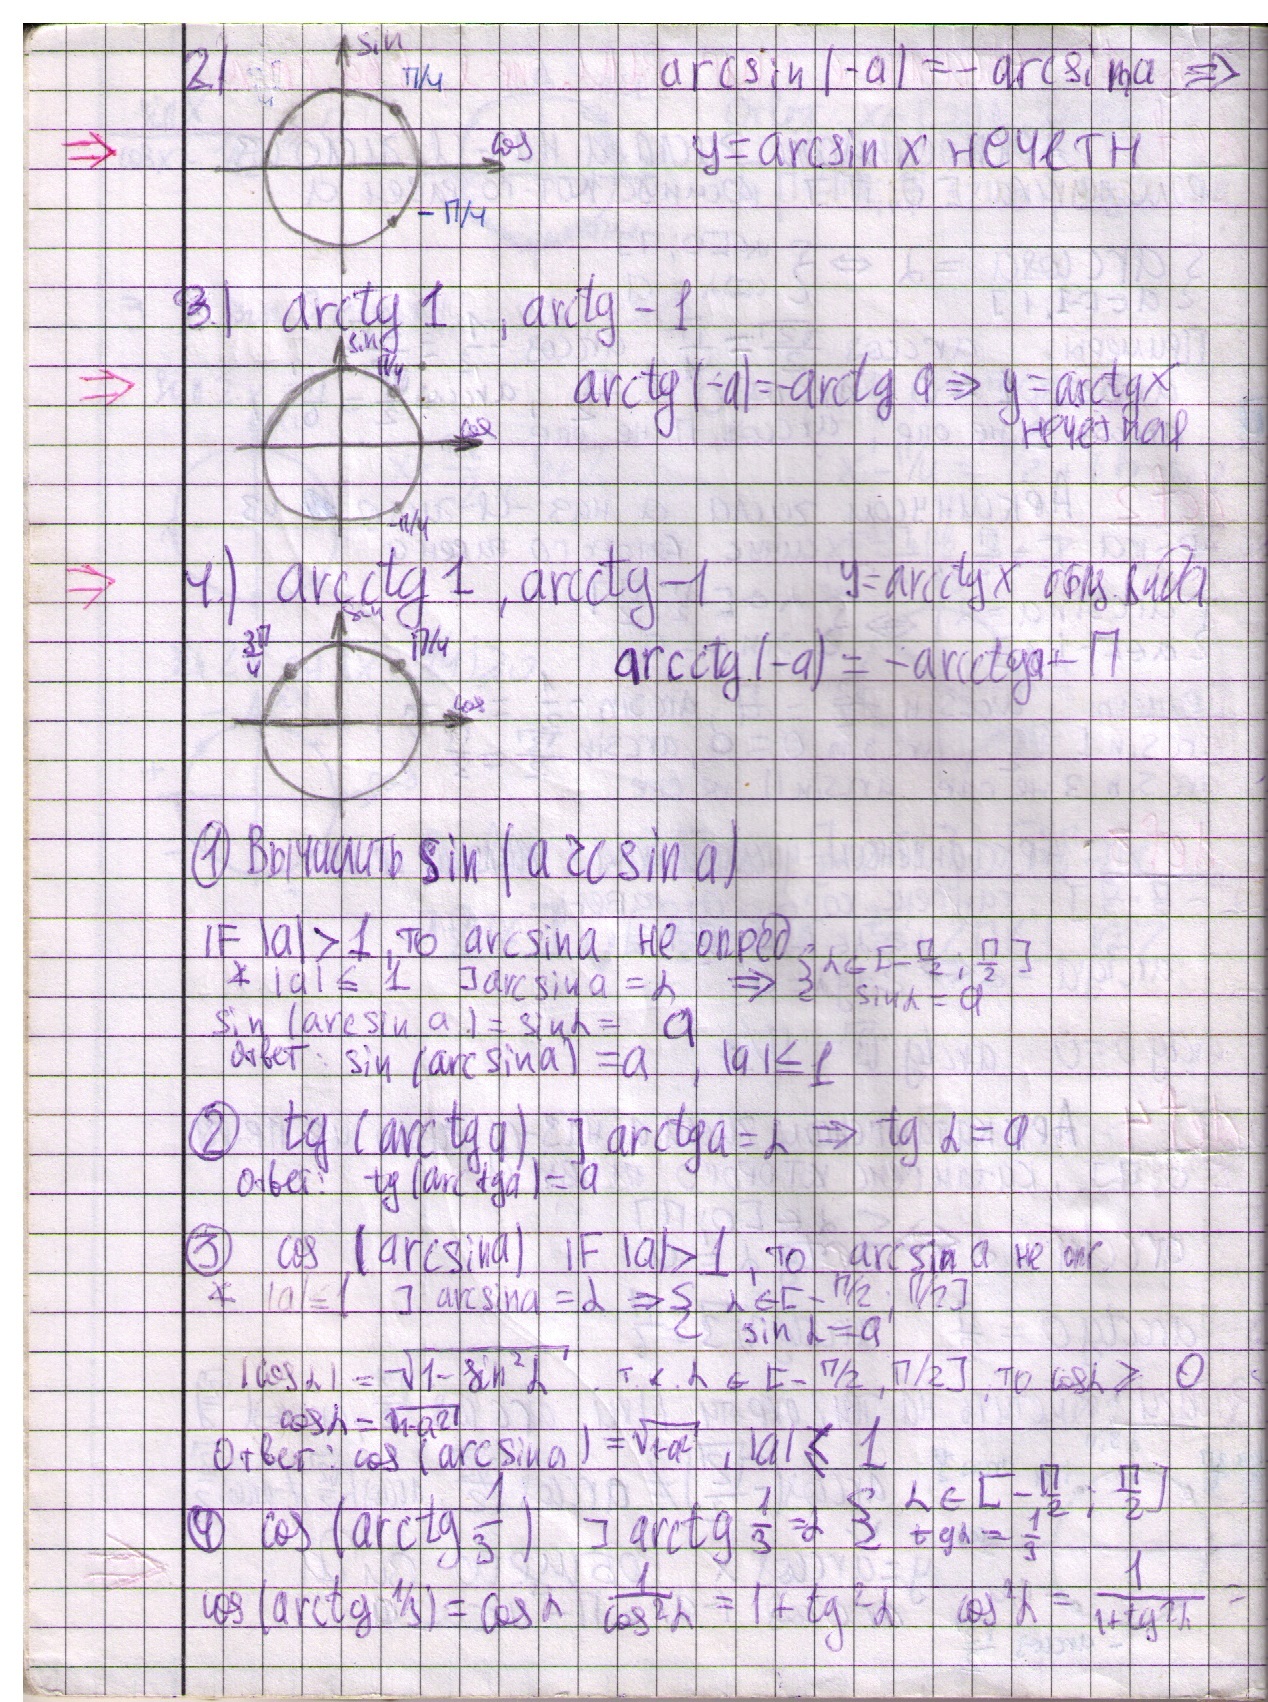 2.) sin π/4 arcsin(-a) = - arcsin a ⇒
⇒ cos y = arcsin x нечетн
- π/4
3.) arctg 1, arctg -1
sin π/4
⇒ cos arctg(-a) = -arctg a ⇒ y = arctg x
нечетная
-π/4
⇒ 4.) arcctg 1, arcctg -1 y = arcctg x общ. вида
3π/4 sin π/4 arcctg(-a) = -arcctg a + π
cos
① Вычислить sin(arcsin a)
IF |a| > 1, то arcsin a не опред
* |a| ≤ 1 ] arcsin a = α ⇒ { α ∈ [-π/2; π/2]
sin α = a
sin(arcsin a) = sin α = a
ответ: sin(arcsin a) = a, |a| ≤ 1
② tg(arctg a) ] arctg a = α ⇒ tg α = a
ответ: tg(arctg a) = a
③ cos(arcsin a) IF |a| > 1, то arcsin a не оп
* |a| ≤ 1 ] arcsin a = α ⇒ { α ∈ [-π/2; π/2]
sin α = a
|cos α| = √1-sin²α т.к. α ∈ [-π/2, π/2], то cos α ≥ 0
cos α = √1-a²
Ответ: cos(arcsin a) = √1-a², |a| ≤ 1
④ cos(arctg 1/3) ] arctg 1/3 = α { α ∈ [-π/2; π/2]
tg α = 1/3
⇒ cos(arctg 1/3) = cos α 1/cos²α = 1 + tg²α cos²α = 1/(1+tg²α) =